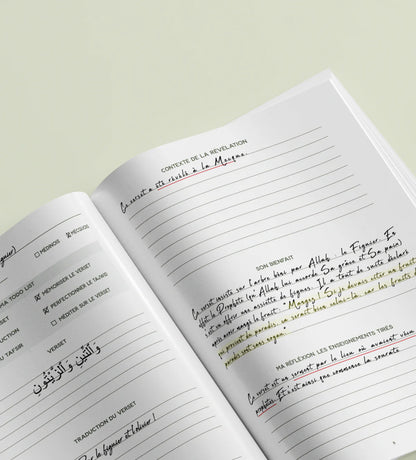 guier)
☐ MÉDINOIS ☒ MECQUOIS
MA TODO LIST
☒ MÉMORISER LE VERSET
☒ PERFECTIONNER LE TAJWID
☐ MÉDITER SUR LE VERSET
VERSET
وَالتِّينِ وَالزَّيْتُونِ
TRADUCTION DU VERSET
Par le figuier et l'olivier !
CONTEXTE DE LA RÉVÉLATION
Ce verset a été révélé à la Mecque.
SON BIENFAIT
Ce verset insiste sur l'arbre béni par Allah : le Figuier. En
effet le Prophète (qu'Allah lui accorde Sa grâce et Sa paix)
s'est vu offrir une assiette de figues. Il a tout de suite déclaré
après avoir mangé le fruit : "Mangez ! Si je devais citer un fruit
qui provient du paradis, ce serait bien celui-là, car les fruits du
paradis sont sans noyau."
MA RÉFLEXION, LES ENSEIGNEMENTS TIRÉS
Ce verset est un serment par le lieu où avaient vécu
prophètes. Et c'est ainsi que commence la sourate